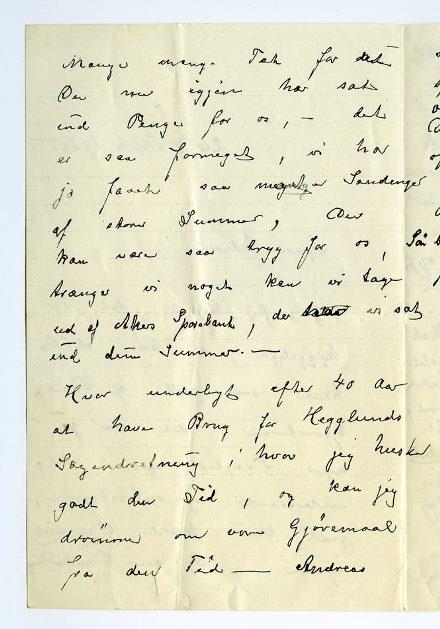 Mange mange Tak for det
De nu igjen har sat
ind Penge for os, — det
er saa formeget, vi har
jo faaet saa mange Sendinger
af store Summer, De
kan være saa tryg for os,
trænger vi noget kan vi tage
ud af Akers Sparebank, der vi sat
ind den Summen. —
Hvor underligt efter 40 Aar
at have Brug for Hegglunds
, hvor jeg husker
godt den Tid, og kan jeg
drömme om vore Gjøremaal
fra den Tid — Andreas